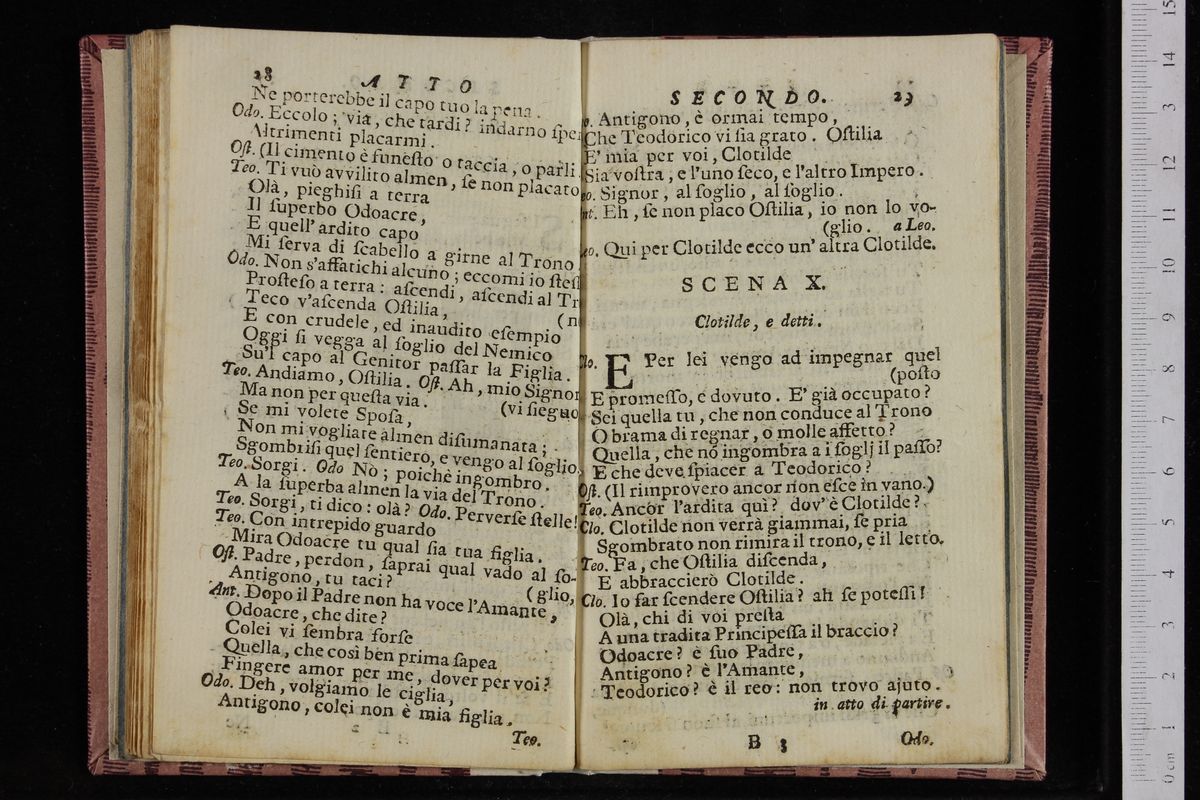 28 ATTO
Ne porterebbe il capo tuo la pena.
Odo. Eccolo; via, che tardi? indarno ſpe
Altrimenti placarmi.
Oſt. (Il cimento è funeſto o taccia, o parli.
Teo. Ti vuò avvilito almen, ſe non placato
Olà, pieghiſi a terra
Il ſuperbo Odoacre,
E quell' ardito capo
Mi ſerva di ſcabello a girne al Trono
Odo. Non s'affatichi alcuno; eccomi io ſteſſ
Proſteſo a terra: aſcendi, aſcendi al Tr
Teco v'aſcenda Oſtilia, (n
E con crudele, ed inaudito eſempio
Oggi ſi vegga al ſoglio del Nemico
Su'l capo al Genitor paſſar la Figlia.
Teo. Andiamo, Oſtilia. Oſt. Ah, mio Signor
Ma non per queſta via. (vi ſieguo
Se mi volete Spoſa,
Non mi vogliate almen diſumanata;
Sgombriſi quel ſentiero, e vengo al ſoglio.
Teo. Sorgi. Odo Nò; poichè ingombro.
A la ſuperba almen la via del Trono.
Teo. Sorgi, ti dico: olà? Odo. Perverſe ſtelle!
Teo. Con intrepido guardo
Mira Odoacre tu qual ſia tua figlia.
Oſt. Padre, perdon, ſaprai qual vado al ſo-
Antigono, tu taci? (glio,
Ant. Dopo il Padre non ha voce l'Amante,
Odoacre, che dite?
Colei vi ſembra forſe
Quella, che così ben prima ſapea
Fingere amor per me, dover per voi?
Odo. Deh, volgiamo le ciglia,
Antigono, colei non è mia figlia.
Teo.
SECONDO. 29
o. Antigono, è ormai tempo,
Che Teodorico vi ſia grato. Oſtilia
E' mia per voi, Clotilde
Sia voſtra, e l'uno ſeco, e l'altro Impero.
eo. Signor, al ſoglio, al ſoglio.
nt. Eh, ſe non placo Oſtilia, io non lo vo-
(glio. a Leo.
eo. Qui per Clotilde ecco un' altra Clotilde.
SCENA X.
Clotilde, e detti.
lo. E Per lei vengo ad impegnar quel
(poſto
E promeſſo, e dovuto. E' già occupato?
Sei quella tu, che non conduce al Trono
O brama di regnar, o molle affetto?
Quella, che nõ ingombra a i ſoglj il paſſo?
E che deve ſpiacer a Teodorico?
Oſt. (Il rimprovero ancor non eſce in vano.)
Teo. Ancor l'ardita quì? dov' è Clotilde?
Clo. Clotilde non verrà giammai, ſe pria
Sgombrato non rimira il trono, e il letto.
Teo. Fa, che Oſtilia diſcenda,
E abbraccierò Clotilde.
Clo. Io far ſcendere Oſtilia? ah ſe poteſſi!
Olà, chi di voi preſta
A una tradita Principeſſa il braccio?
Odoacre? è ſuo Padre,
Antigono? è l'Amante,
Teodorico? è il reo: non trovo ajuto.
in atto di partire.
B 3 Odo.
0 cm 1 2 3 4 5 6 7 8 9 10 11 12 13 14 15